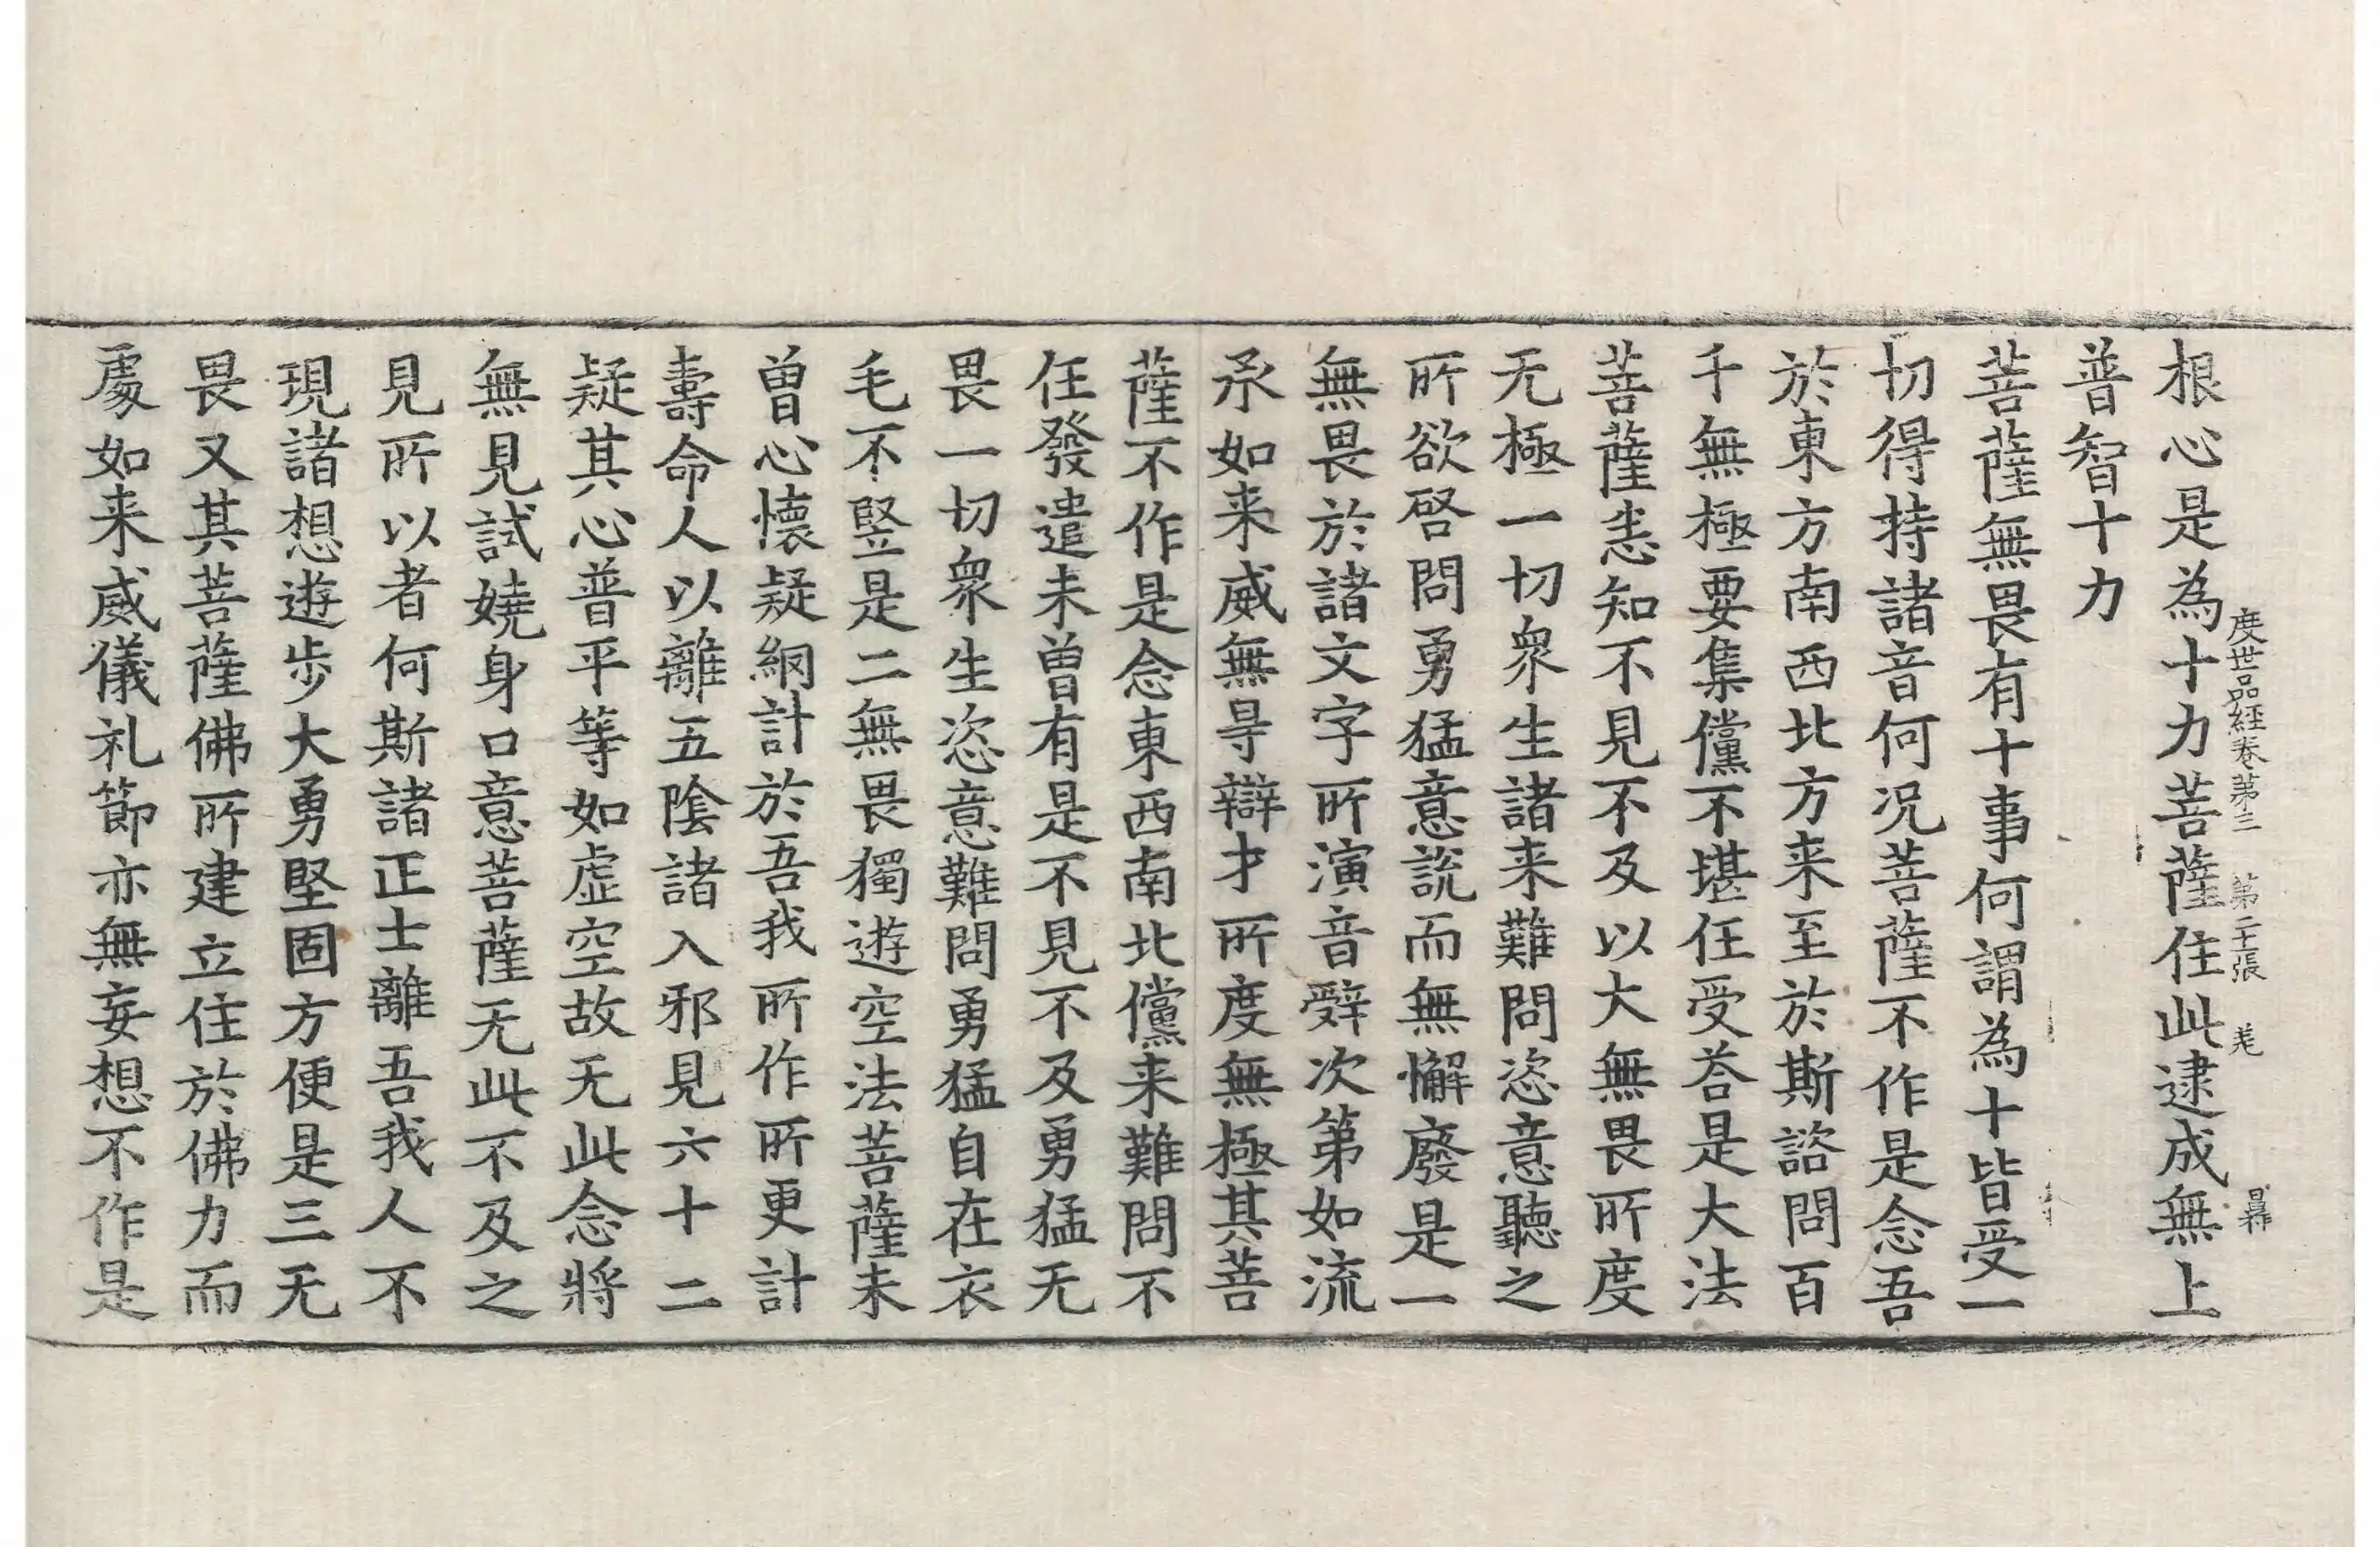 度世品経卷第三　第二十張　羌
根心是為十力菩薩住此逮成無上
普智十力
菩薩無畏有十事何謂為十皆受一
切得持諸音何况菩薩不作是念吾
於東方南西北方来至於斯諮問百
千無極要集儻不堪任受荅是大法
菩薩悉知不見不及以大無畏所度
无極一切衆生諸来難問恣意聽之
所欲啓問勇猛意說而無懈廢是一
無畏於諸文字所演音辤次第如流
承如来威無㝵辯才所度無極其菩
薩不作是念東西南北儻来難問不
任發遣未曾有是不見不及勇猛无
畏一切衆生恣意難問勇猛自在衣
毛不竪是二無畏獨遊空法菩薩未
曾心懷疑網計於吾我所作所更計
壽命人以離五陰諸入邪見六十二
疑其心普平等如虚空故无此念將
無見試嬈身口意菩薩无此不及之
見所以者何斯諸正士離吾我人不
現諸想遊步大勇堅固方便是三无
畏又其菩薩佛所建立住於佛力而
䖏如来威儀礼節亦無妄想不作是